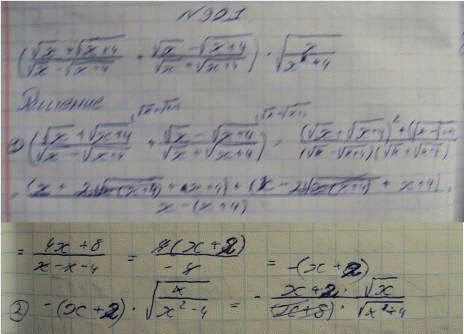 №901
(√x + √x+4 / √x - √x+4 + √x - √x+4 / √x + √x+4) · √x / x²+4
Решение
1) (√x + √x+4 / √x - √x+4 + √x - √x+4 / √x + √x+4) = (√x + √x+4)² + (√x - √x+4) / (√x - √x+4)(√x + √x+4) =
= (x + 2√x(x+4) + x+4) + (x - 2√x(x+4) + x+4) / x - (x+4) =
= 4x+8 / x-x-4 = 4(x+2) / -8 = -(x+2)
2) -(x+2) · √x / x²-4 = - x+2 · √x / √x²+4